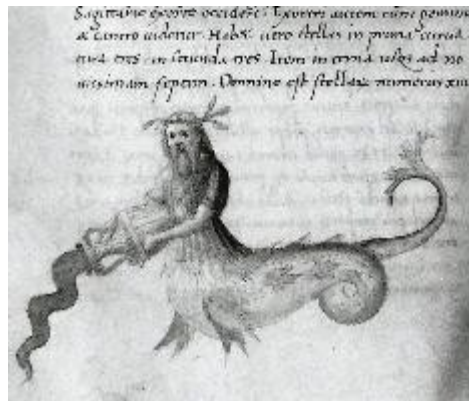 Sagittario exorto occidere. Exoriri autem cum
a Cancro videtur. Habet vero stellas in prima
tura tres. in secunda tres. Item in usque ad no
vissimam septem. Omnino est stellarum numerus xiii